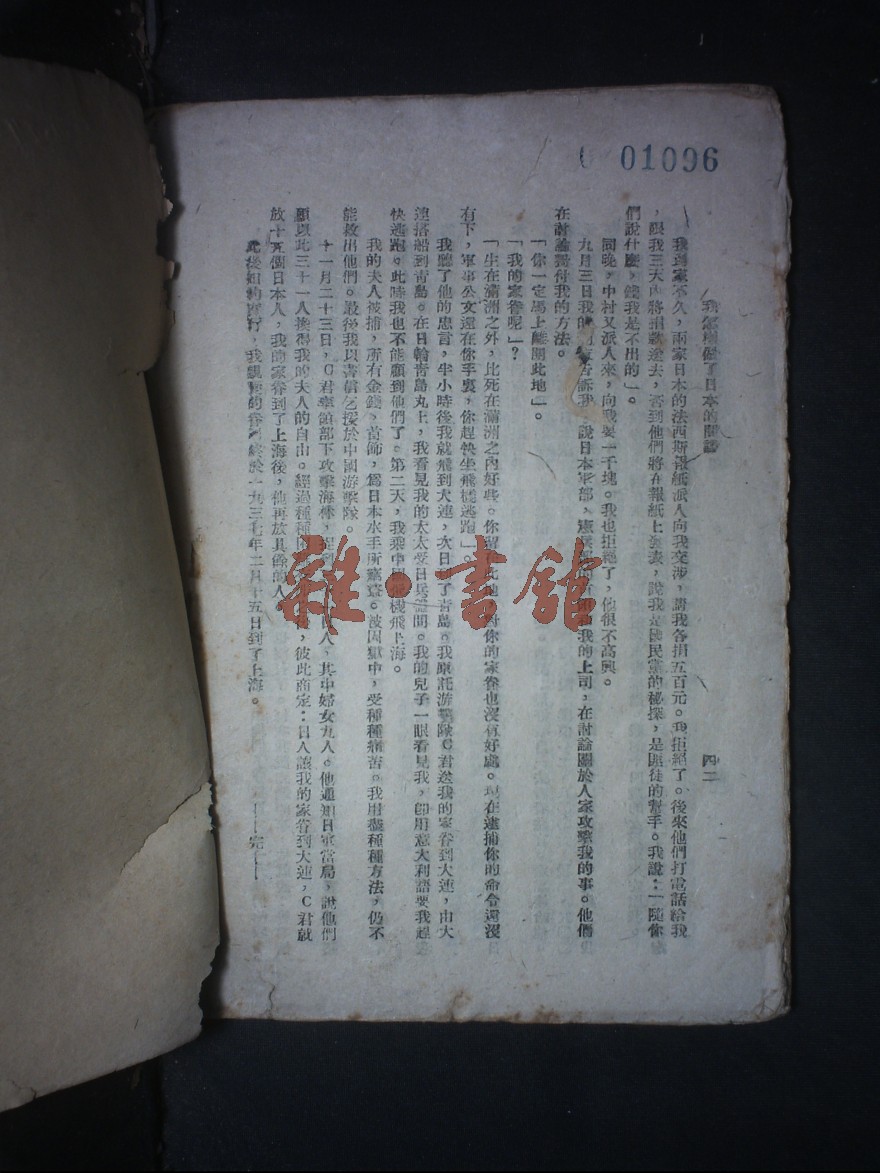 01096
我怎樣做了日本的間諜
四二
我到家不久，兩家日本的法西斯報紙派人向我交涉，請我各捐五百元。我拒絕了。後來他們打電話給我
，限我三天內將捐款送去，否則他們將在報紙上發表，說我是國民黨的秘探，是匪徒的幫手。我說：「隨你
們說什麼，錢我是不出的」。
同晚，中村又派人來，向我要一千塊。我也拒絕了，他很不高興。
九月三日我的 告訴我，說日本軍部，憲 的 我的上司，在討論關於人家攻擊我的事。他們
在討論對付我的方法。
「你一定馬上離開此地」。
「我的家眷呢」？
「生在滿洲之外，比死在滿洲之內好些。你 此地 對你的家眷也沒有好處。現在逮捕你的命令還沒
有下，軍事公文還在你手裏，你趕快坐飛機逃跑」。
我聽了他的忠言，半小時後我就飛到大連，次日到了青島。我原託游擊隊C君送我的家眷到大連，由大
連搭船到青島。在日輪青島丸上，我看見我的太太受日兵盤問。我的兒子一眼看見我，即用意大利語要我趕
快逃跑。此時我也不能顧到他們了。第二天，我乘中國飛機飛上海。
我的夫人被捕，所有金錢，首飾，為日本水手所竊盜。被囚獄中，受種種痛苦。我用盡種種方法，仍不
能救出他們。最後我以書信乞援於中國游擊隊。
十一月二十三日，C君率領部下攻擊海林，捉到 人，其中婦女九人。他通知日軍當局，說他們
願以此三十一人換得我的夫人的自由。經過種種 後，彼此商定：日人讓我的家眷到大連，C君就
放十五個日本人，我的家眷到了上海後，他再放其餘的人。
此後如約實行，我親愛的眷屬終於一九三七年二月十五日到了上海。
——完——
雜·書館